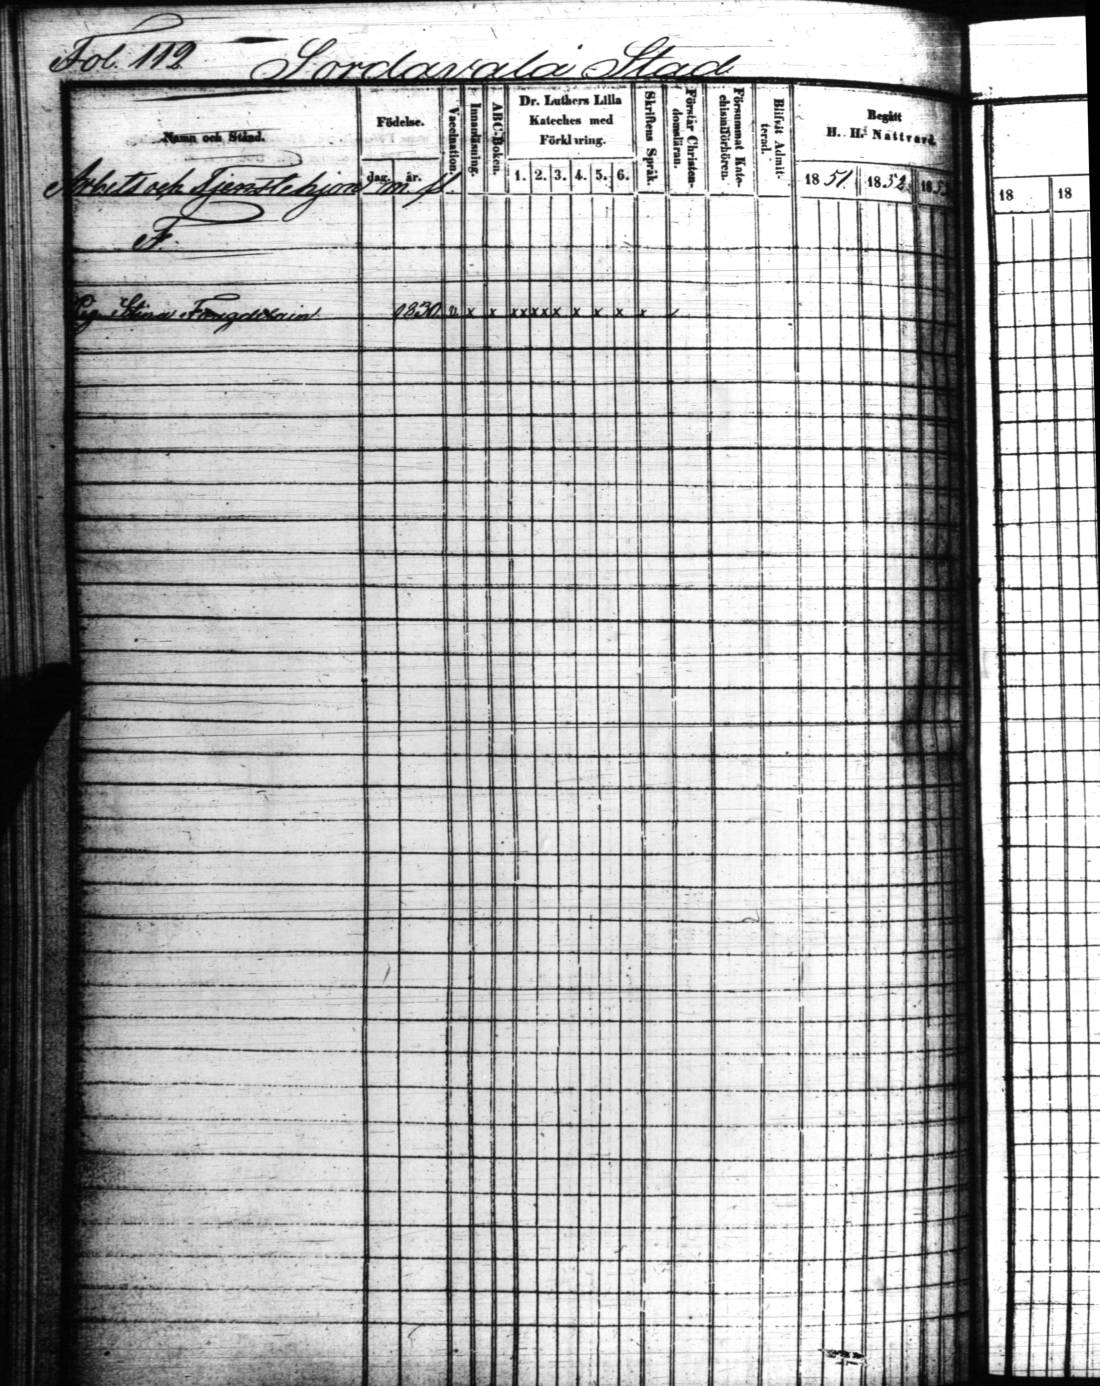 Fol. 112 Sordavala Stad
Namn och Stånd.
Födelse.
dag. år.
Vaccination.
Innanläsning.
ABC-Boken.
Dr. Luthers Lilla
Kateches med
Förklaring.
1. 2. 3. 4. 5. 6.
Skriftens Språk.
Förstår Christen-
domsläran.
Försummat Kate-
chismiförhören.
Blifvit Admit-
terad.
Begått
H. H:s Nattvard.
1851. 1852. 1853
18 18
Arbets och Tjenstehjon m. fl.
F.
Pig. Stina 1830. v x x xx xx x x x x x